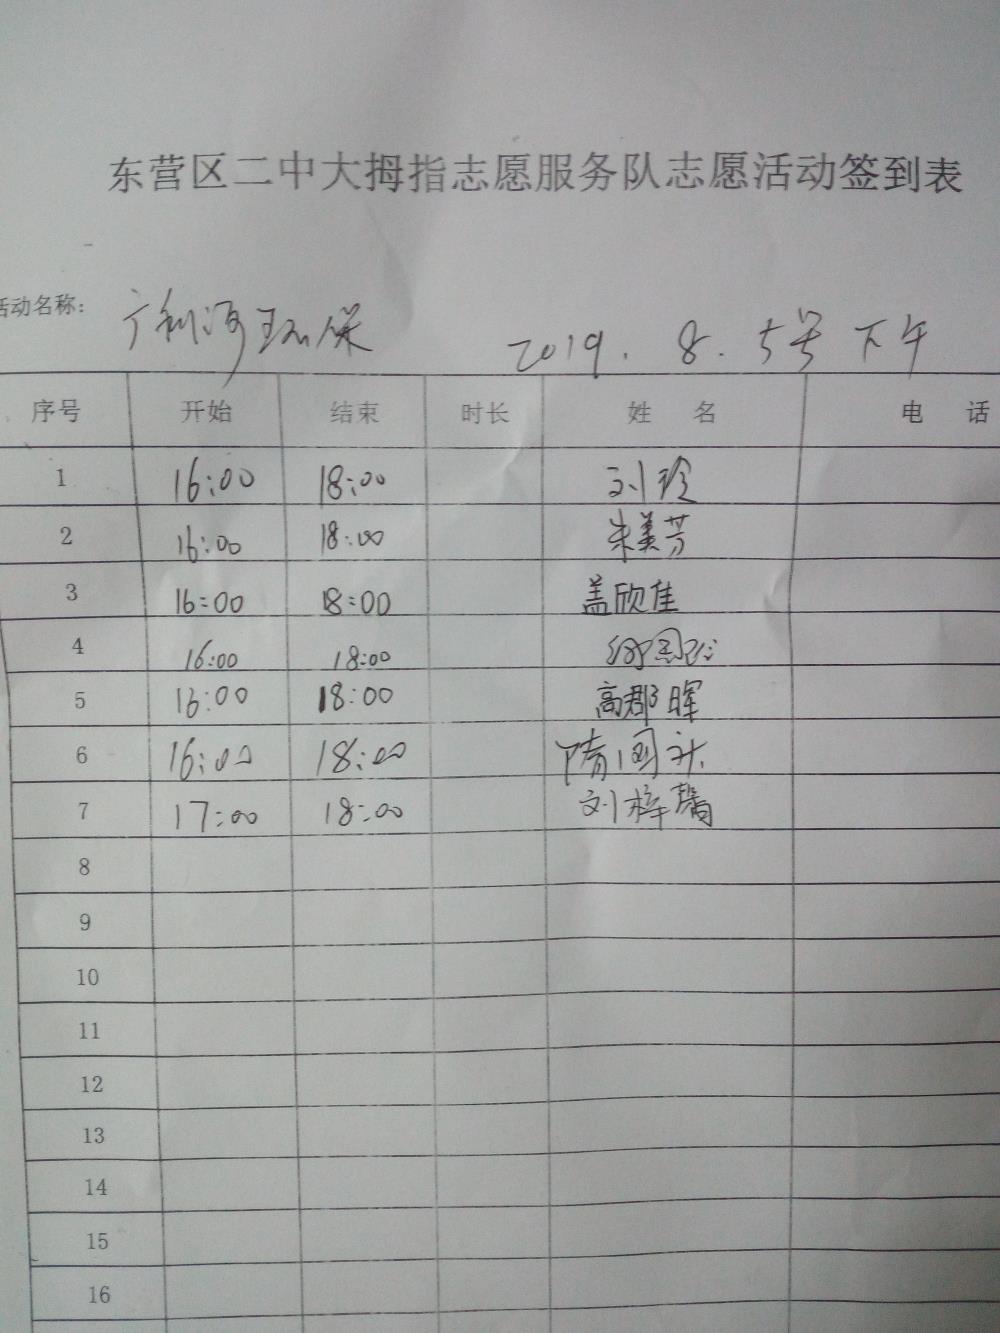 东营区二中大拇指志愿服务队志愿活动签到表
活动名称: 广利河环保 2019.8.5号下午
序号 开始 结束 时长 姓 名 电 话
1 16:00 18:00 刘玲
2 16:00 18:00 朱美芳
3 16:00 18:00 盖欣佳
4 16:00 18:00
5 16:00 18:00 高郡晖
6 16:00 18:00 隋国
7 17:00 18:00 刘梓
8
9
10
11
12
13
14
15
16